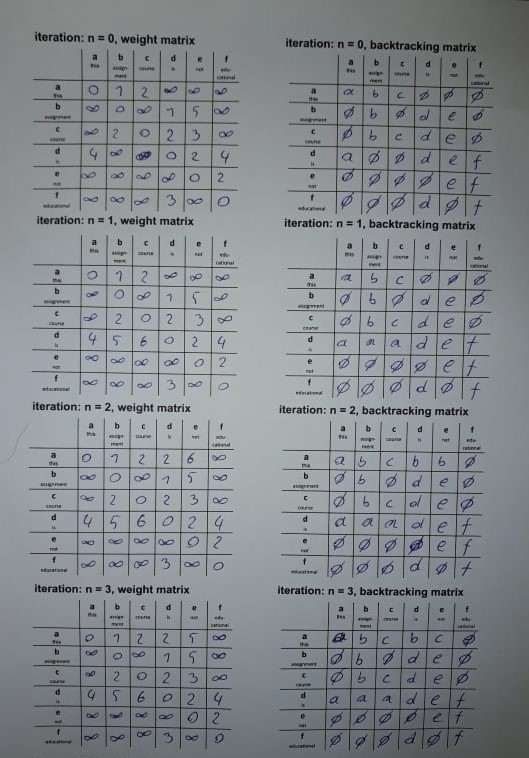 iteration: n = 0, weight matrix
a b c d e f
this assign-ment course is not edu-cational
a this 0 1 2 ∞ ∞ ∞
b assignment ∞ 0 ∞ 1 5 ∞
c course ∞ 2 0 2 3 ∞
d is 4 ∞ ∞ 0 2 4
e not ∞ ∞ ∞ ∞ 0 2
f educational ∞ ∞ ∞ 3 ∞ 0
iteration: n = 0, backtracking matrix
a b c d e f
this assign-ment course is not edu-cational
a this a b c ∅ ∅ ∅
b assignment ∅ b ∅ d e ∅
c course ∅ b c d e ∅
d is a ∅ ∅ d e f
e not ∅ ∅ ∅ ∅ e f
f educational ∅ ∅ ∅ d ∅ f
iteration: n = 1, weight matrix
a b c d e f
this assign-ment course is not edu-cational
a this 0 1 2 ∞ ∞ ∞
b assignment ∞ 0 ∞ 1 5 ∞
c course ∞ 2 0 2 3 ∞
d is 4 5 6 0 2 4
e not ∞ ∞ ∞ ∞ 0 2
f educational ∞ ∞ ∞ 3 ∞ 0
iteration: n = 1, backtracking matrix
a b c d e f
this assign-ment course is not edu-cational
a this a b c ∅ ∅ ∅
b assignment ∅ b ∅ d e ∅
c course ∅ b c d e ∅
d is a a a d e f
e not ∅ ∅ ∅ ∅ e f
f educational ∅ ∅ ∅ d ∅ f
iteration: n = 2, weight matrix
a b c d e f
this assign-ment course is not edu-cational
a this 0 1 2 2 6 ∞
b assignment ∞ 0 ∞ 1 5 ∞
c course ∞ 2 0 2 3 ∞
d is 4 5 6 0 2 4
e not ∞ ∞ ∞ ∞ 0 2
f educational ∞ ∞ ∞ 3 ∞ 0
iteration: n = 2, backtracking matrix
a b c d e f
this assign-ment course is not edu-cational
a this a b c b b ∅
b assignment ∅ b ∅ d e ∅
c course ∅ b c d e ∅
d is a a a d e f
e not ∅ ∅ ∅ ∅ e f
f educational ∅ ∅ ∅ d ∅ f
iteration: n = 3, weight matrix
a b c d e f
this assign-ment course is not edu-cational
a this 0 1 2 2 5 ∞
b assignment ∞ 0 ∞ 1 5 ∞
c course ∞ 2 0 2 3 ∞
d is 4 5 6 0 2 4
e not ∞ ∞ ∞ ∞ 0 2
f educational ∞ ∞ ∞ 3 ∞ 0
iteration: n = 3, backtracking matrix
a b c d e f
this assign-ment course is not edu-cational
a this a b c b c ∅
b assignment ∅ b ∅ d e ∅
c course ∅ b c d e ∅
d is a a a d e f
e not ∅ ∅ ∅ ∅ e f
f educational ∅ ∅ ∅ d ∅ f